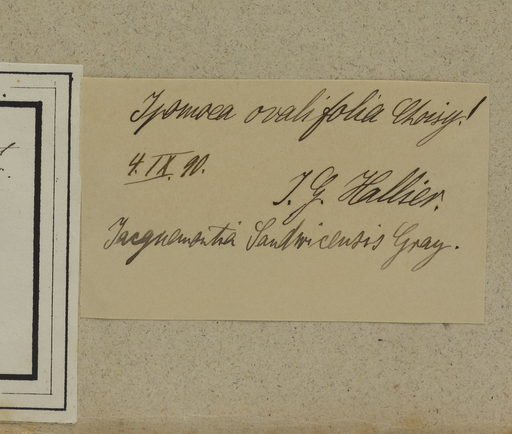 Ipomoea ovalifolia Choisy!
4. IX. 90.
J. G. Hallier.
Jacquemontia Sandwicensis Gray.